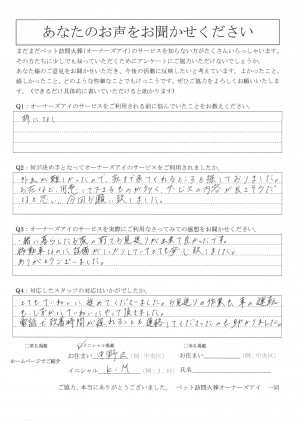 あなたのお声をお聞かせください
まだまだペット訪問火葬(オーナーズアイ)のサービスを知らない方がたくさんいらっしゃいます。
その方たちに少しでも知っていただくためにアンケートにご協力いただけないでしょうか。
あなた様のご意見をお聞かせいただき、今後の活動に反映したいと考えています。よかったこと、
嬉しかったこと、どのような些細なことでもけっこうです。ぜひご協力をよろしくお願いいたします。
(できるだけ具体的に書いていただけると助かります)
Q1:オーナーズアイのサービスをご利用される前に悩んでいたことをお教えください。
特になし
Q2:何が決め手となってオーナーズアイのサービスをご利用されましたか。
外出が難しかったので、家まで来てくれるところを探しておりました。
お花など、用意して下さるものが多く、サービスの内容が良さそうだ
なと思い、今回お願い致しました。
Q3:オーナーズアイのサービスを実際にご利用なさってみての感想をお聞かせください。
一緒に暮らしたお家の前でお見送りが出来て良かったです。
移動車なのに設備がしっかりしていてとても安心致しました。
ありがとうございました。
Q4:対応したスタッフの対応はいかがでしたか。
とてもていねいに進めてくださいました。お見送りの作業も、車の運転
も、しずかにていねいにやって頂きました。
電話で到着時間が遅れることを連絡してくださったのも助かりました。
□匿名掲載
イニシャル掲載
□実名掲載
ホームページでご紹介
お住まい 中野区 (例:中央区)
お住まい (例:中央区)
イニシャル K-M (例:J.H)
氏名
ご協力、本当にありがとうございました。 ペット訪問火葬オーナーズアイ 一同